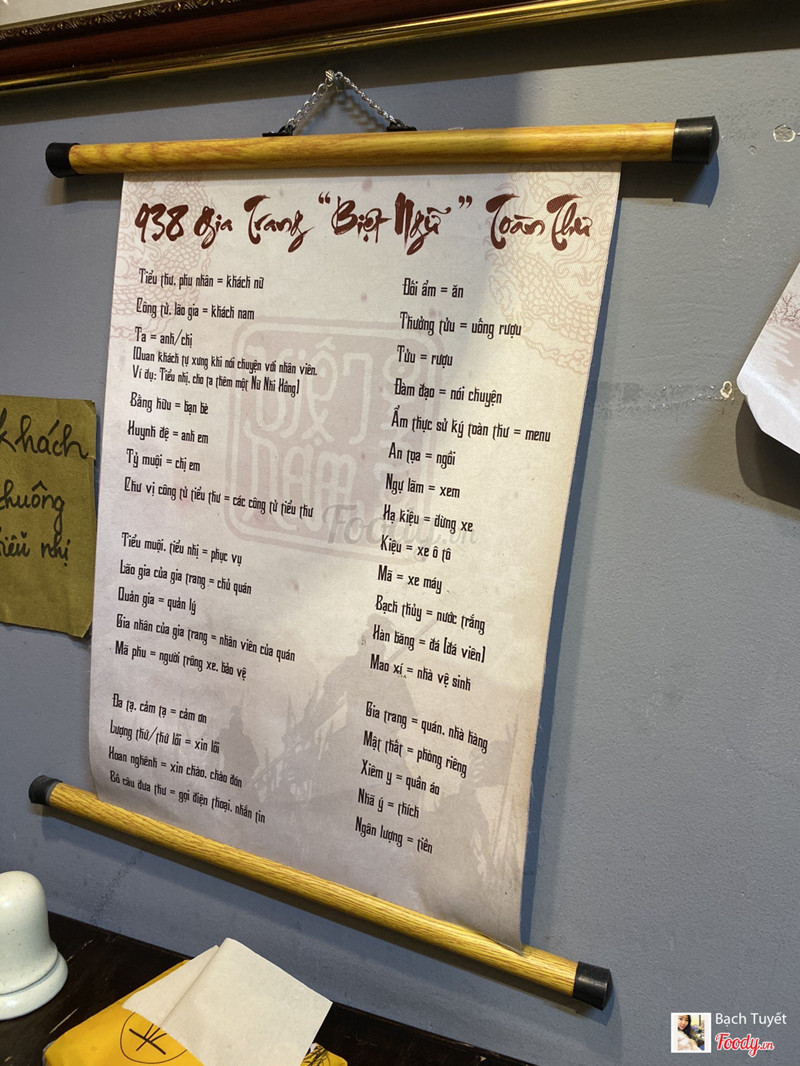 938 Gia Trang "Biệt Ngữ" Toàn Thư
Tiểu thư, phu nhân = khách nữ
Công tử, lão gia = khách nam
Ta = anh/chị
(Quan khách tự xưng khi nói chuyện với nhân viên.
Ví dụ: Tiểu nhị, cho ta thêm một Nữ Nhi Hồng)
Bằng hữu = bạn bè
Huynh đệ = anh em
Tỷ muội = chị em
Chư vị công tử tiểu thư = các công tử tiểu thư
Tiểu muội, tiểu nhị = phục vụ
Lão gia của gia trang = chủ quán
Quản gia = quản lý
Gia nhân của gia trang = nhân viên của quán
Mã phu = người trông xe, bảo vệ
Đa tạ, cảm tạ = cảm ơn
Lượng thứ/thứ lỗi = xin lỗi
Hoan nghênh = xin chào, chào đón
Bồ câu đưa thư = gọi điện thoại, nhắn tin
Đối ẩm = ăn
Thưởng tửu = uống rượu
Tửu = rượu
Đàm đạo = nói chuyện
Ẩm thực sử ký toàn thư = menu
An tọa = ngồi
Ngự lãm = xem
Hạ kiệu = dừng xe
Kiệu = xe ô tô
Mã = xe máy
Bạch thủy = nước trắng
Hàn băng = đá (đá viên)
Mao xí = nhà vệ sinh
Gia trang = quán, nhà hàng
Mật thất = phòng riêng
Xiêm y = quần áo
Nhã ý = thích
Ngân lượng = tiền
khách
chuông
tiểu nhị
Foody.vn
Bạch Tuyết
Foody.vn